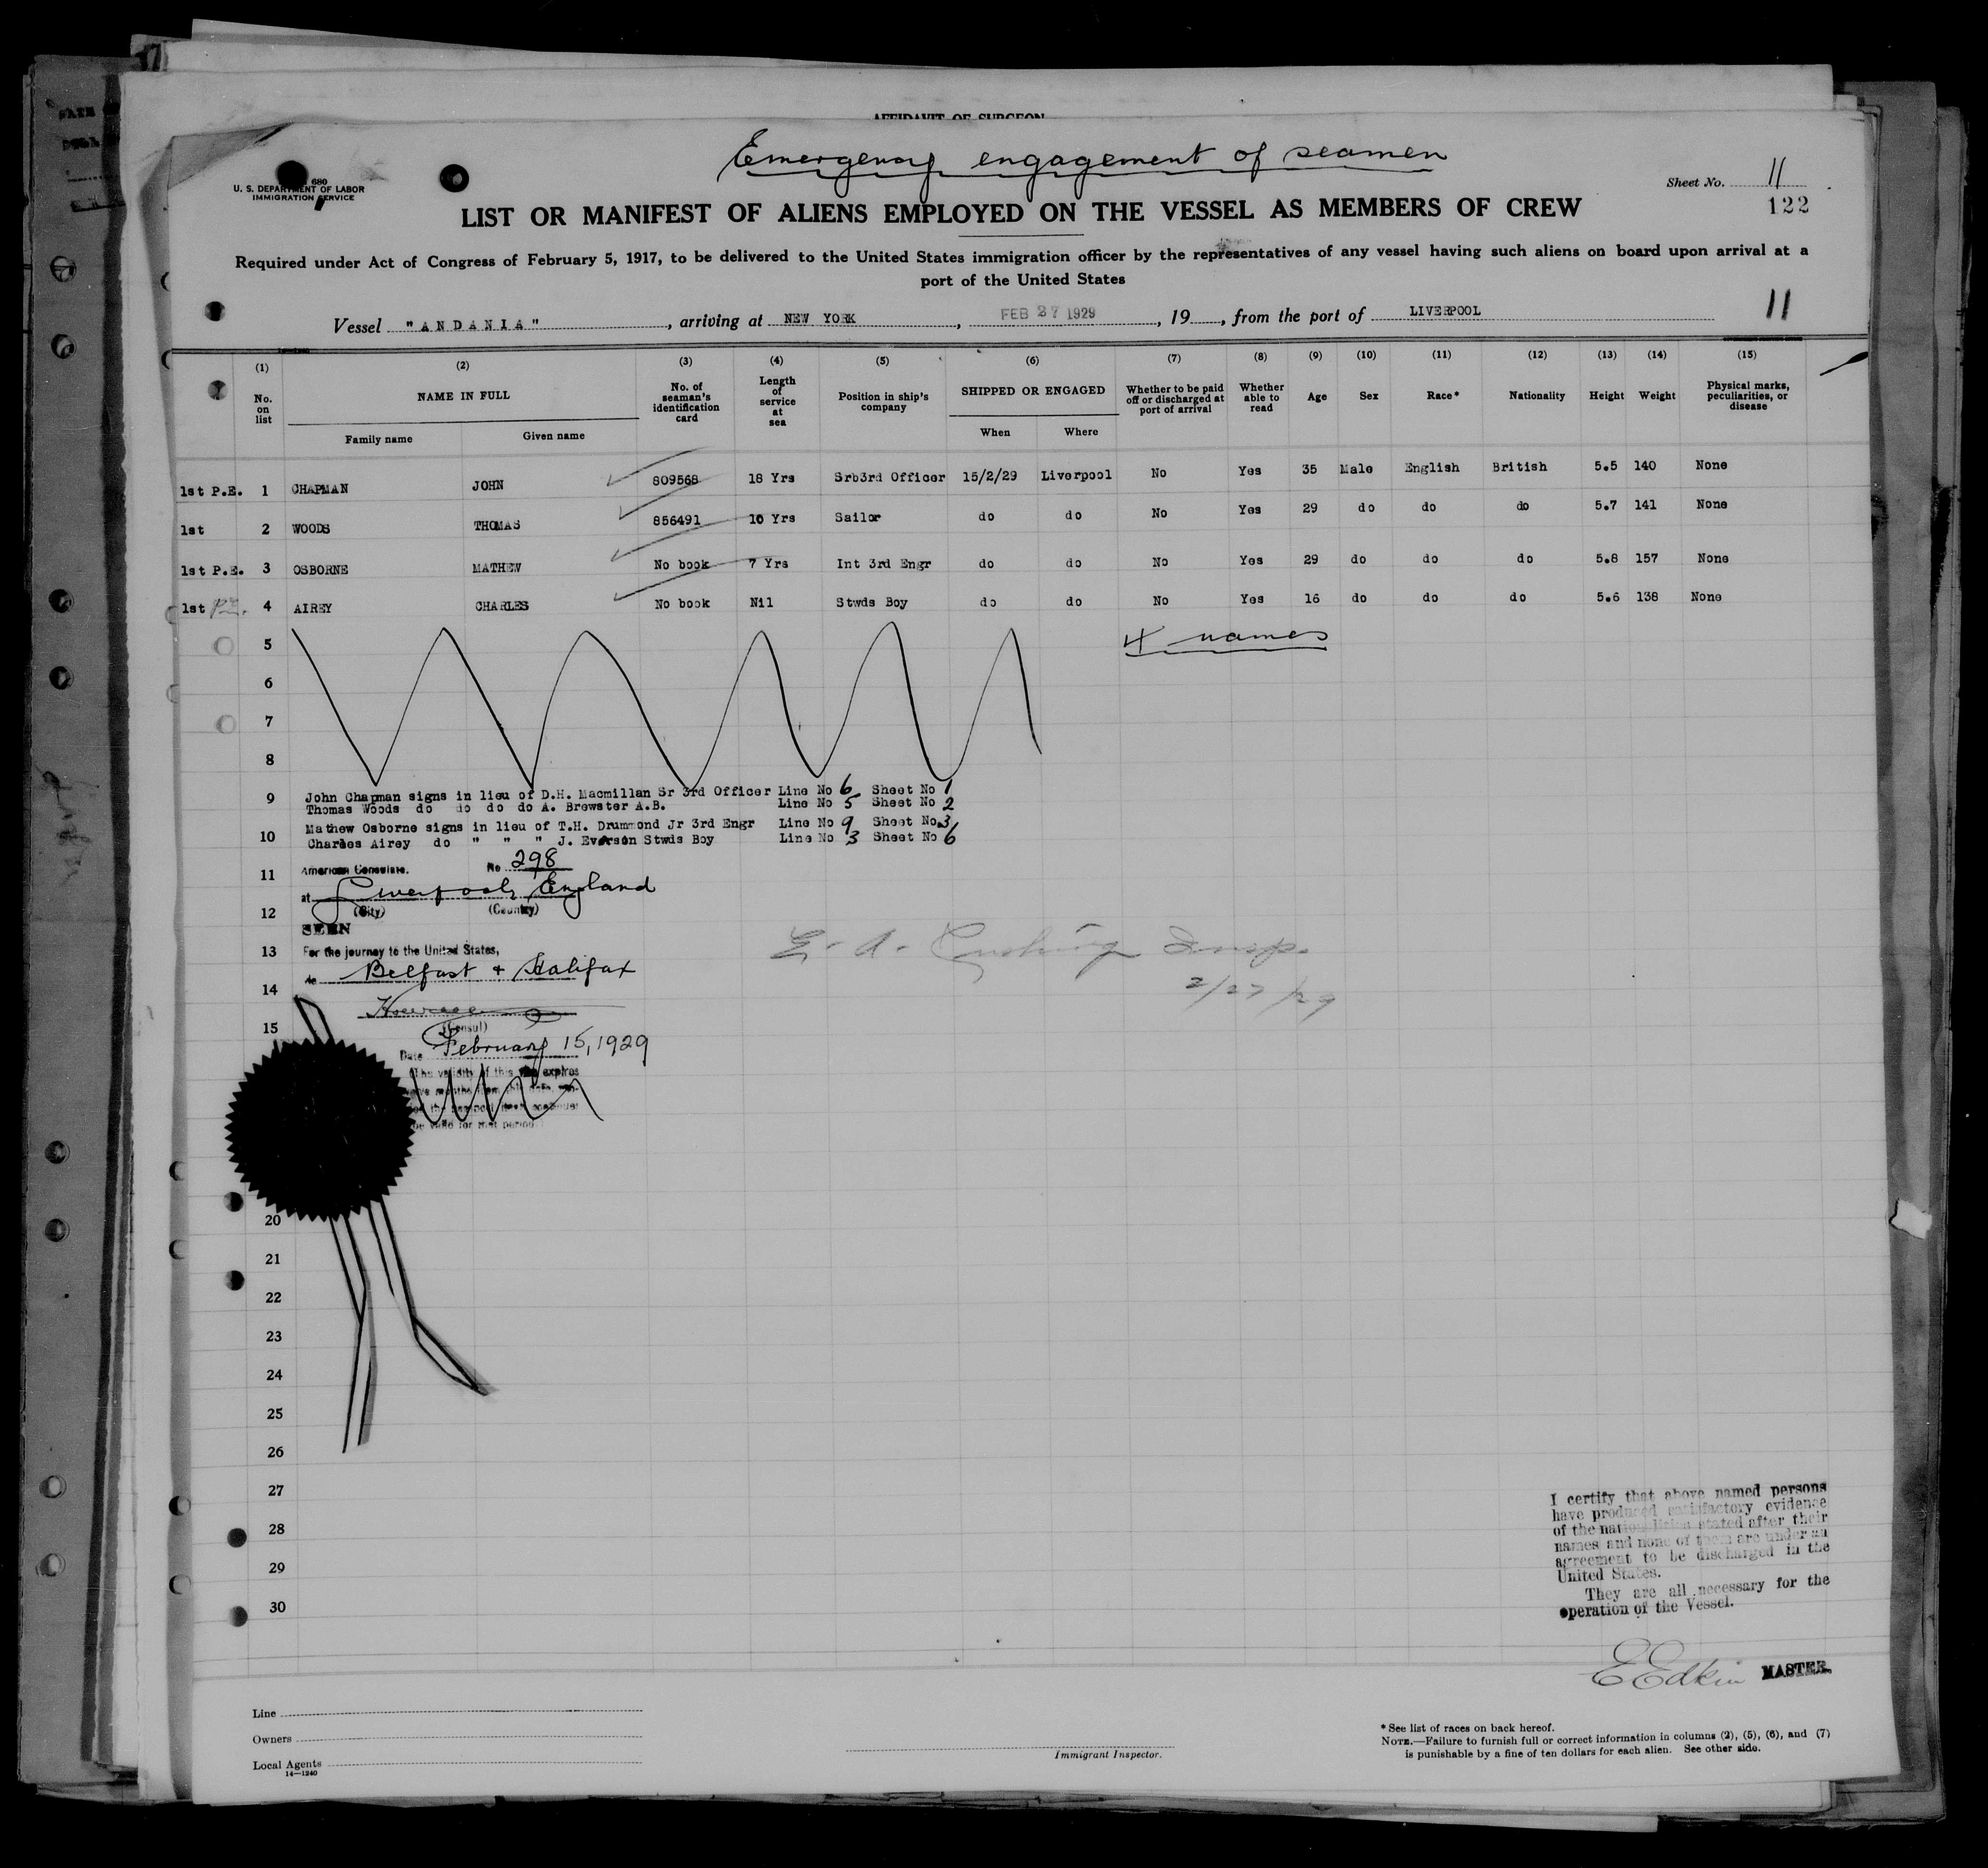 AFFIDAVIT OF SURGEON
Emergency engagement of seamen
680
U. S. DEPARTMENT OF LABOR
IMMIGRATION SERVICE
Sheet No. 11
122
LIST OR MANIFEST OF ALIENS EMPLOYED ON THE VESSEL AS MEMBERS OF CREW
Required under Act of Congress of February 5, 1917, to be delivered to the United States immigration officer by the representatives of any vessel having such aliens on board upon arrival at a
port of the United States
Vessel "ANDANIA", arriving at NEW YORK, FEB 27 1929, 19, from the port of LIVERPOOL
11
(1) (2) (3) (4) (5) (6) (7) (8) (9) (10) (11) (12) (13) (14) (15)
No. on list NAME IN FULL No. of seaman's identification card Length of service at sea Position in ship's company SHIPPED OR ENGAGED Whether to be paid off or discharged at port of arrival Whether able to read Age Sex Race* Nationality Height Weight Physical marks, peculiarities, or disease
Family name Given name When Where
1st P.E. 1 CHAPMAN JOHN 809568 18 Yrs Srb3rd Officer 15/2/29 Liverpool No Yes 35 Male English British 5.5 140 None
1st 2 WOODS THOMAS 856491 10 Yrs Sailor do do No Yes 29 do do do 5.7 141 None
1st P.E. 3 OSBORNE MATHEW No book 7 Yrs Int 3rd Engr do do No Yes 29 do do do 5.8 157 None
1st P.E. 4 AIREY CHARLES No book Nil Stwds Boy do do No Yes 16 do do do 5.6 138 None
5 4 names
6
7
8
9 John Chapman signs in lieu of D.H. Macmillan Sr 3rd Officer Line No 6 Sheet No 1
Thomas Woods do do do do A. Brewster A.B. Line No 5 Sheet No 2
Mathew Osborne signs in lieu of T.H. Drummond Jr 3rd Engr Line No 9 Sheet No 3
10 Charles Airey do " " " J. Everson Stwds Boy Line No 3 Sheet No 6
11 American Consulate. No 298
at Liverpool, England
12 (City) (Country)
SEEN
13 For the journey to the United States,
Belfast + Halifax
E. A. Cushing Insp.
14
2/27/29
15 (Consul)
Date February 15, 1929
The validity of this expires
be valid for that period.
20
21
22
23
24
25
26
27
28
29
30
I certify that above named persons
have produced satisfactory evidence
of the nationalities stated after their
names and none of them are under an
agreement to be discharged in the
United States.
They are all necessary for the
operation of the Vessel.
E Edkin MASTER.
Line
Owners
Local Agents
14—1240
Immigrant Inspector.
*See list of races on back hereof.
NOTE.—Failure to furnish full or correct information in columns (2), (5), (6), and (7)
is punishable by a fine of ten dollars for each alien. See other side.